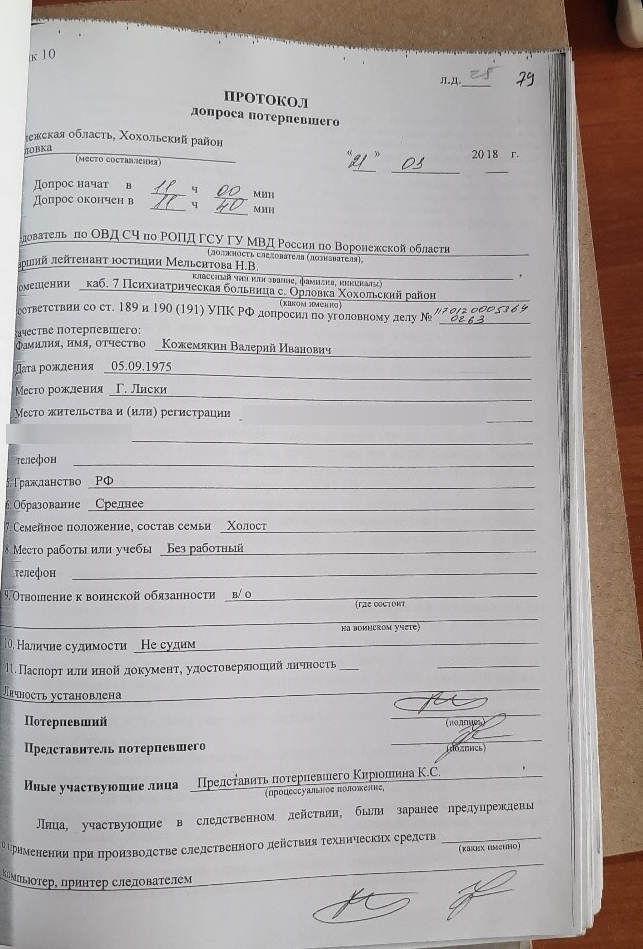 к 10
Л.Д. 28 79
ПРОТОКОЛ
допроса потерпевшего
ежская область, Хохольский район
ловка
(место составления)
« 21 » 03 2018 г.
Допрос начат в 11 ч 00 мин
Допрос окончен в 11 ч 40 мин
дователь по ОВД СЧ по РОПД ГСУ ГУ МВД России по Воронежской области
(должность следователя (дознавателя),
рший лейтенант юстиции Мельситова Н.В.
классный чин или звание, фамилия, инициалы)
омещении каб. 7 Психиатрическая больница с. Орловка Хохольский район
(каком именно)
оответствии со ст. 189 и 190 (191) УПК РФ допросил по уголовному делу № 1170120005364
0263
ачестве потерпевшего:
Фамилия, имя, отчество Кожемякин Валерий Иванович
Дата рождения 05.09.1975
Место рождения Г. Лиски
Место жительства и (или) регистрации
телефон
5. Гражданство РФ
6. Образование Среднее
7. Семейное положение, состав семьи Холост
8. Место работы или учебы Без работный
телефон
9. Отношение к воинской обязанности в/ о
(где состоит
на воинском учете)
10. Наличие судимости Не судим
11. Паспорт или иной документ, удостоверяющий личность
Личность установлена
Потерпевший
(подпись)
Представитель потерпевшего
(подпись)
Иные участвующие лица Представить потерпевшего Кирюшина К.С.
(процессуальное положение,
Лица, участвующие в следственном действии, были заранее предупреждены
о применении при производстве следственного действия технических средств
(каких именно)
компьютер, принтер следователем